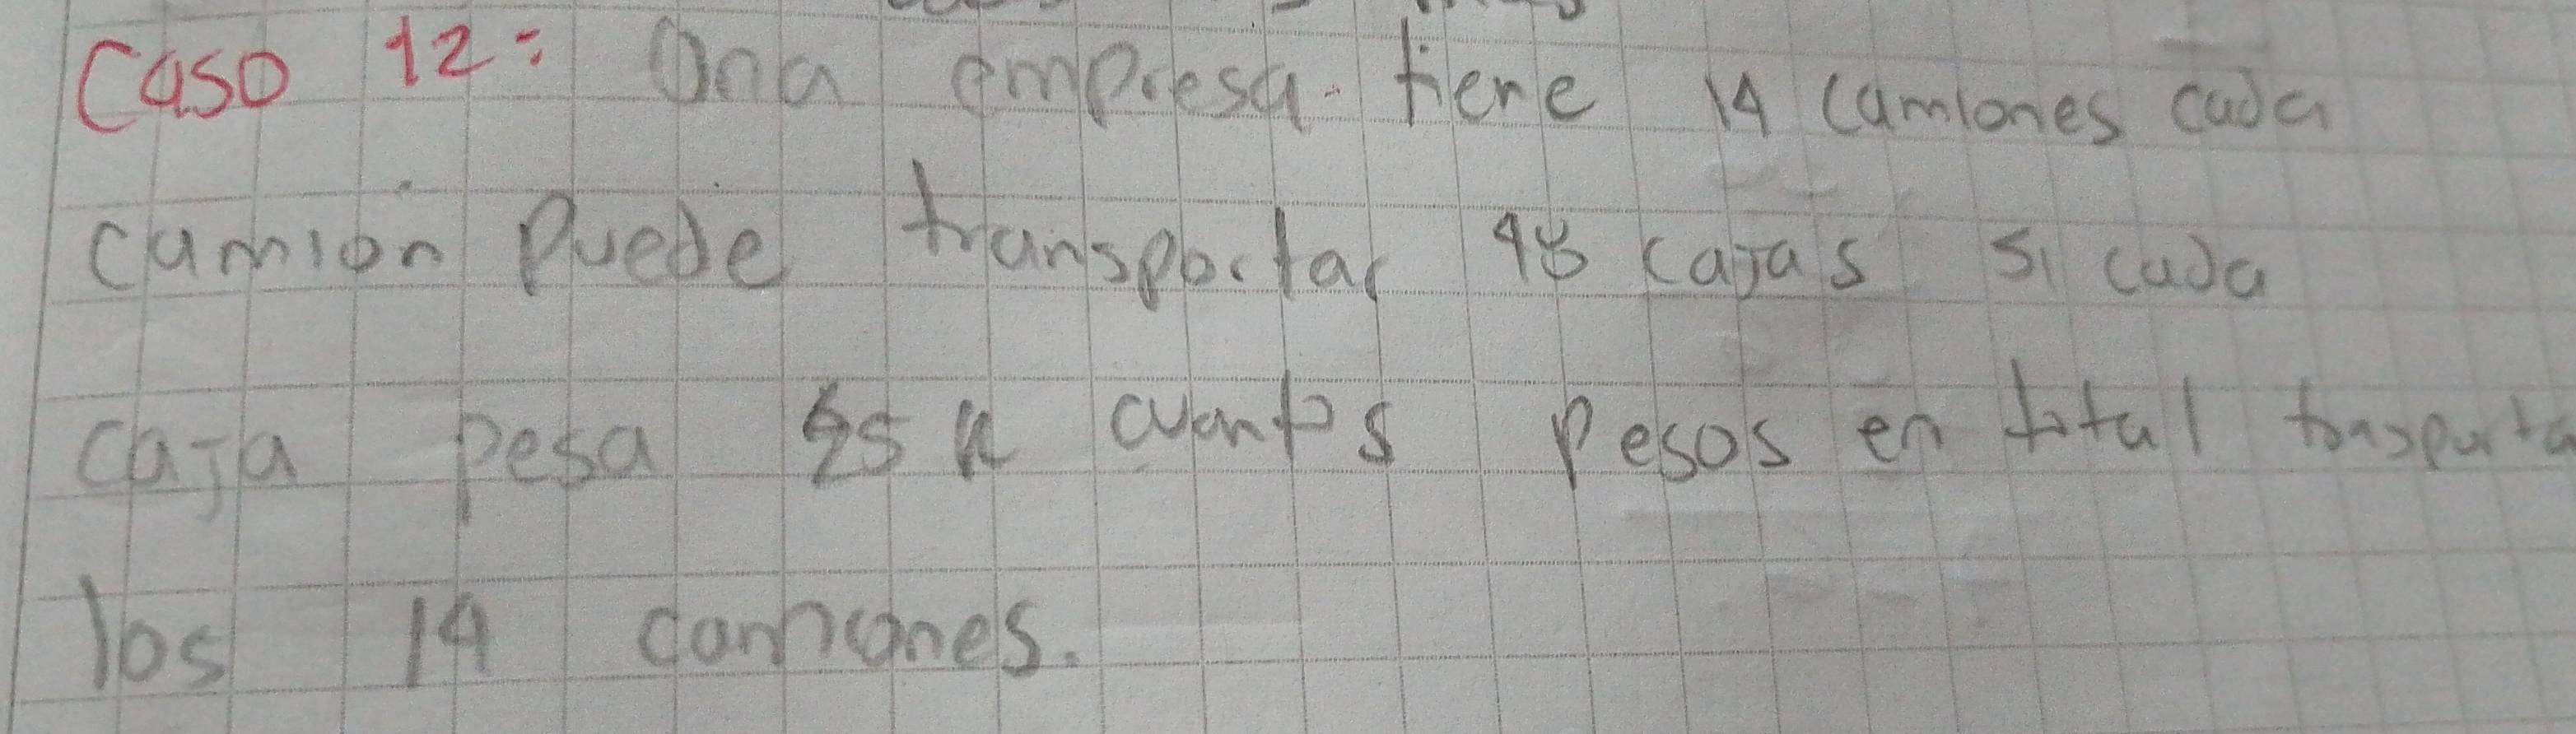 Caso 12: Una empresa tiene 14 camiones cada
camion puede transportar 48 cajas si cada
caja pesa 25 K cuantos pesos en total transporta
los 14 camiones.